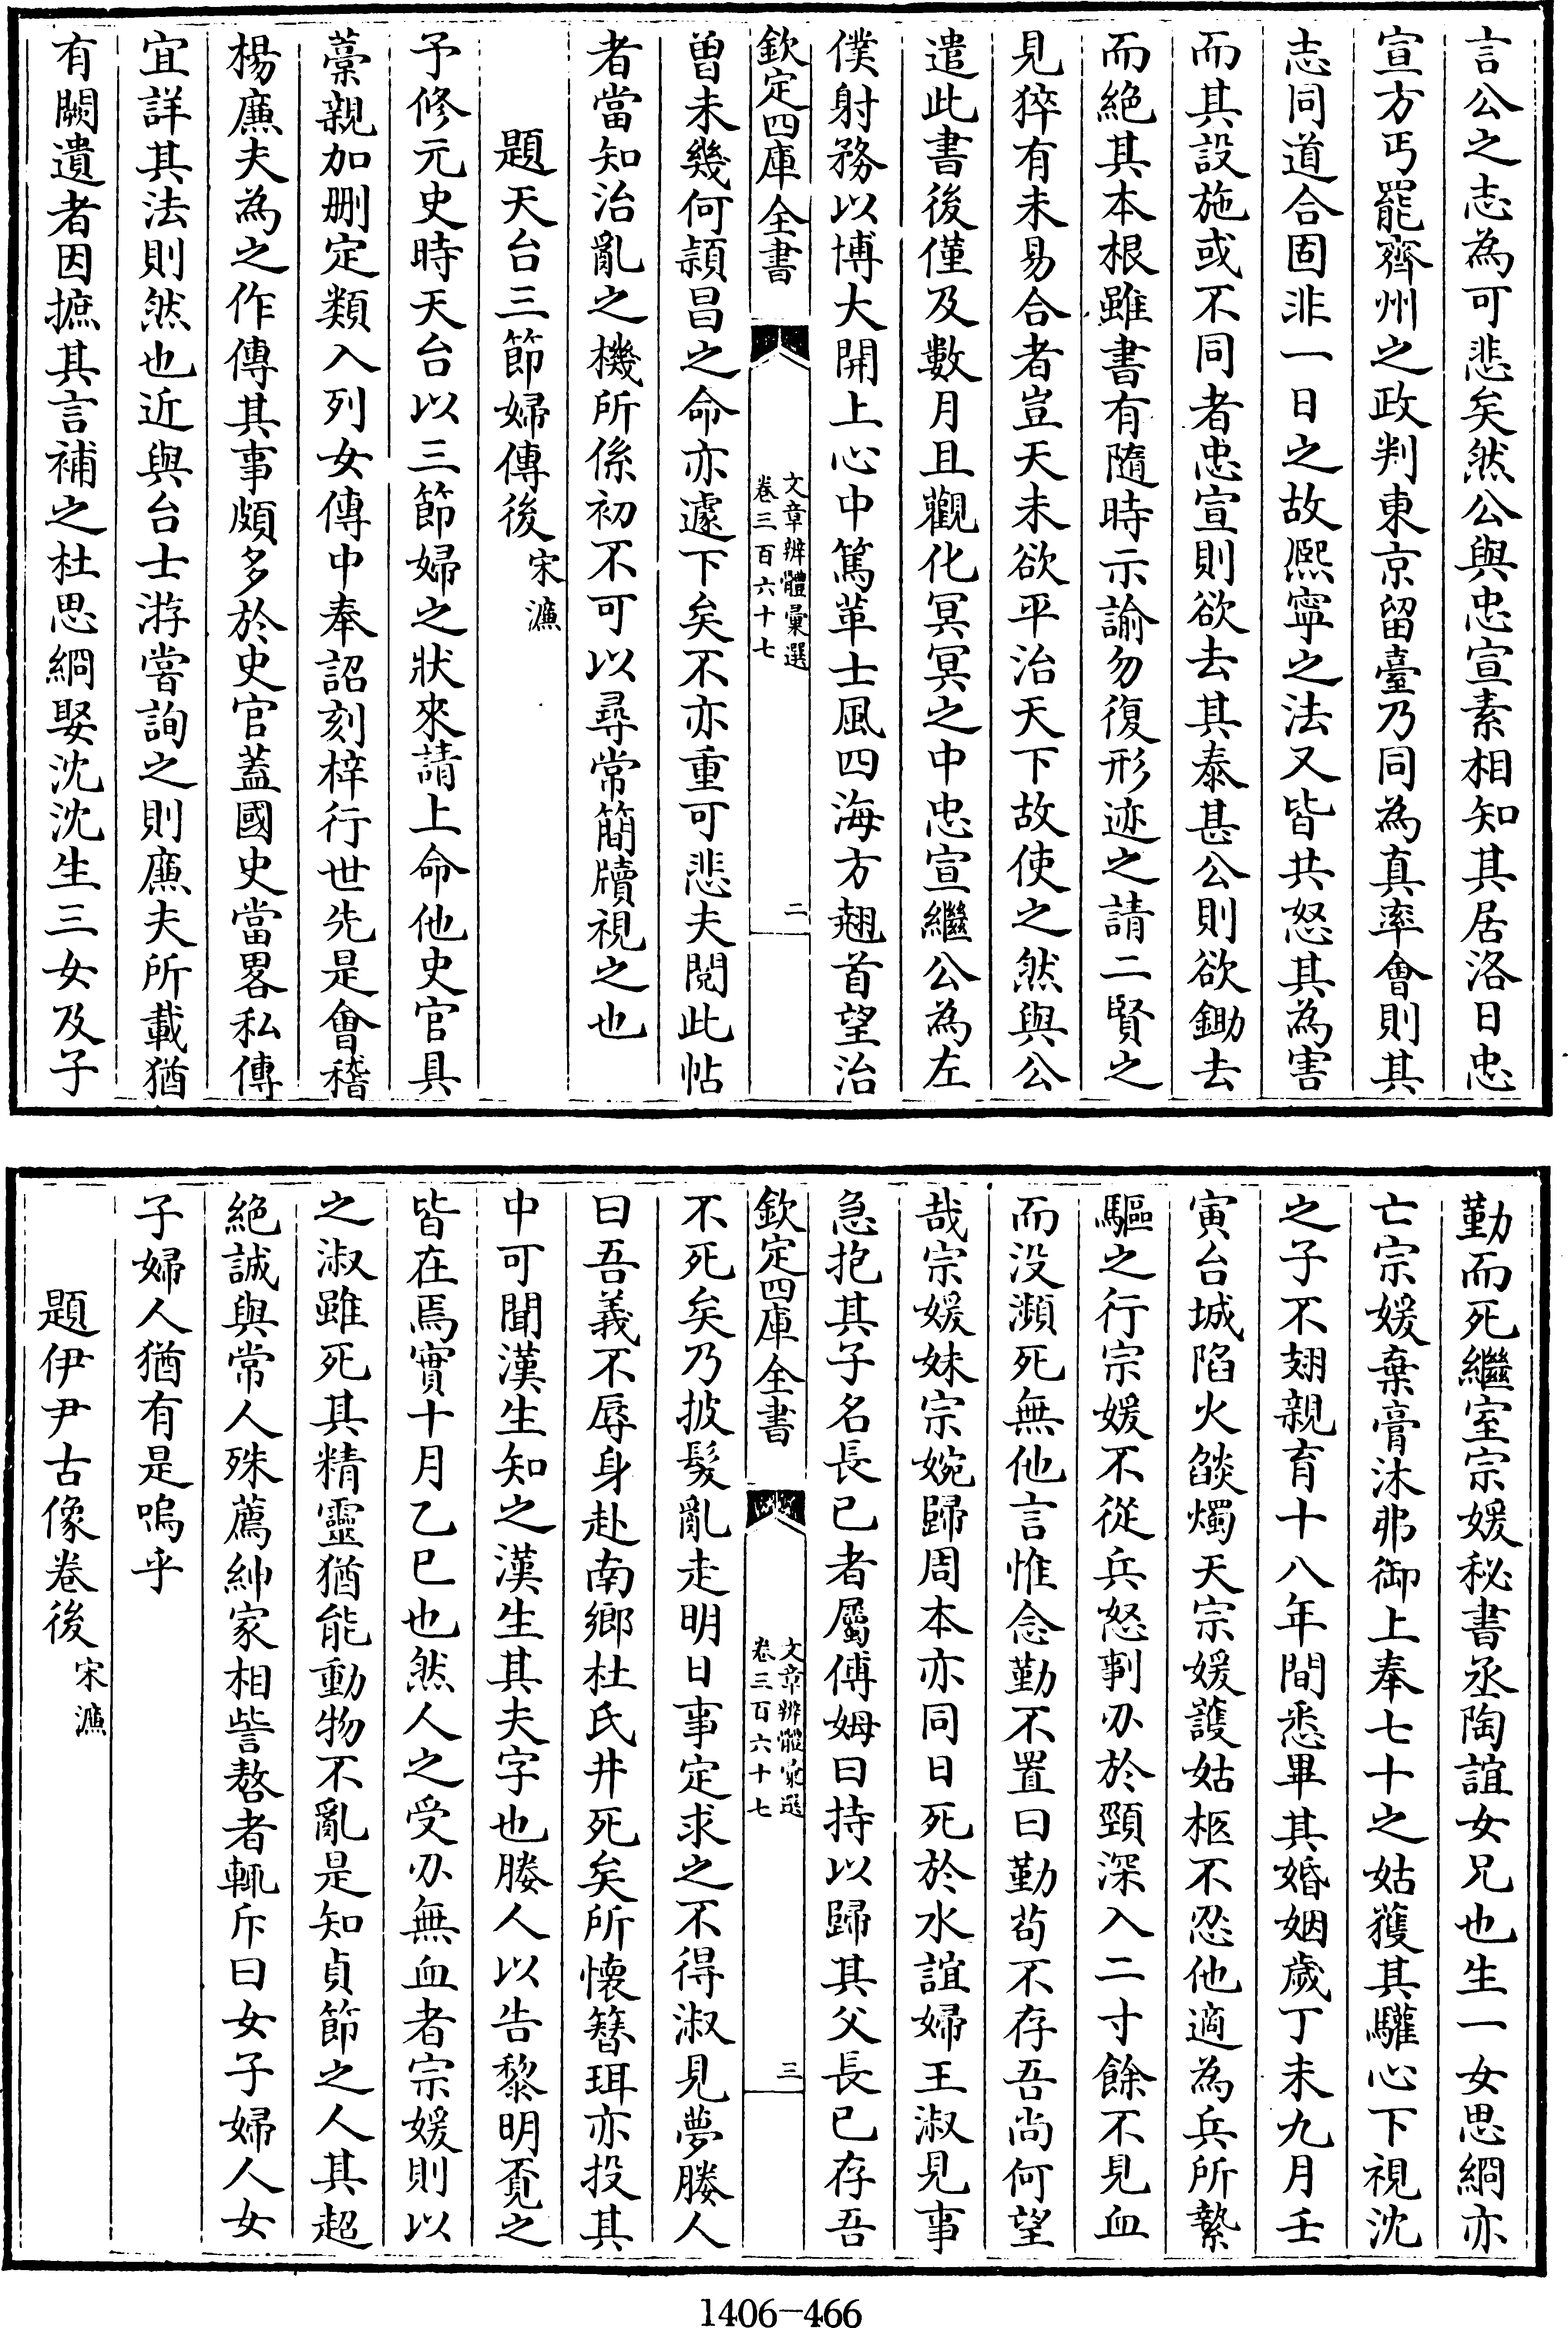 言公之志為可悲矣然公與忠宣素相知其居洛日忠
宣方丐罷齊州之政判東京留臺乃同為真率會則其
志同道合固非一日之故熈寧之法又皆共怒其為害
而其設施或不同者忠宣則欲去其泰甚公則欲鋤去
而絶其本根雖書有隨時示諭勿復形迹之請二賢之
見猝有未易合者豈天未欲平治天下故使之然與公
遣此書後僅及數月且觀化冥冥之中忠宣繼公為左
僕射務以博大開上心中篤革士風四海方翹首望治
欽定四庫全書
文章辨體彙選
卷三百六十七
二
曽未幾何頴昌之命亦遽下矣不亦重可悲夫閱此帖
者當知治亂之機所係初不可以尋常簡牘視之也
題天台三節婦傳後 宋濂
予修元史時天台以三節婦之狀來請上命他史官具
藁親加刪定類入列女傳中奉詔刻梓行世先是會稽
楊亷夫為之作傳其事頗多於史官蓋國史當畧私傳
宜詳其法則然也近與台士游嘗詢之則亷夫所載猶
有闕遺者因摭其言補之杜思絅娶沈沈生三女及子
勤而死繼室宗媛秘書丞陶誼女兄也生一女思絅亦
亡宗媛棄膏沐弗御上奉七十之姑獲其驩心下視沈
之子不翅親育十八年間悉畢其婚姻歲丁未九月壬
寅台城陷火燄燭天宗媛護姑柩不忍他適為兵所縶
驅之行宗媛不從兵怒剚刅於頸深入二寸餘不見血
而没瀕死無他言惟念勤不置曰勤苟不存吾尚何望
哉宗媛妹宗婉歸周本亦同日死於水誼婦王淑見事
急抱其子名長已者屬傅姆曰持以歸其父長已存吾
欽定四庫全書
文章辨體彙選
卷三百六十七
三
不死矣乃披髮亂走明日事定求之不得淑見夢媵人
曰吾義不辱身赴南鄉杜氏井死矣所懐簪珥亦投其
中可聞漢生知之漢生其夫字也媵人以告黎明覔之
皆在焉實十月乙巳也然人之受刅無血者宗媛則以
之淑雖死其精靈猶能動物不亂是知貞節之人其超
絶誠與常人殊薦紳家相訾嗸者輒斥曰女子婦人女
子婦人猶有是嗚乎
題伊尹古像卷後 宋濂
1406-466